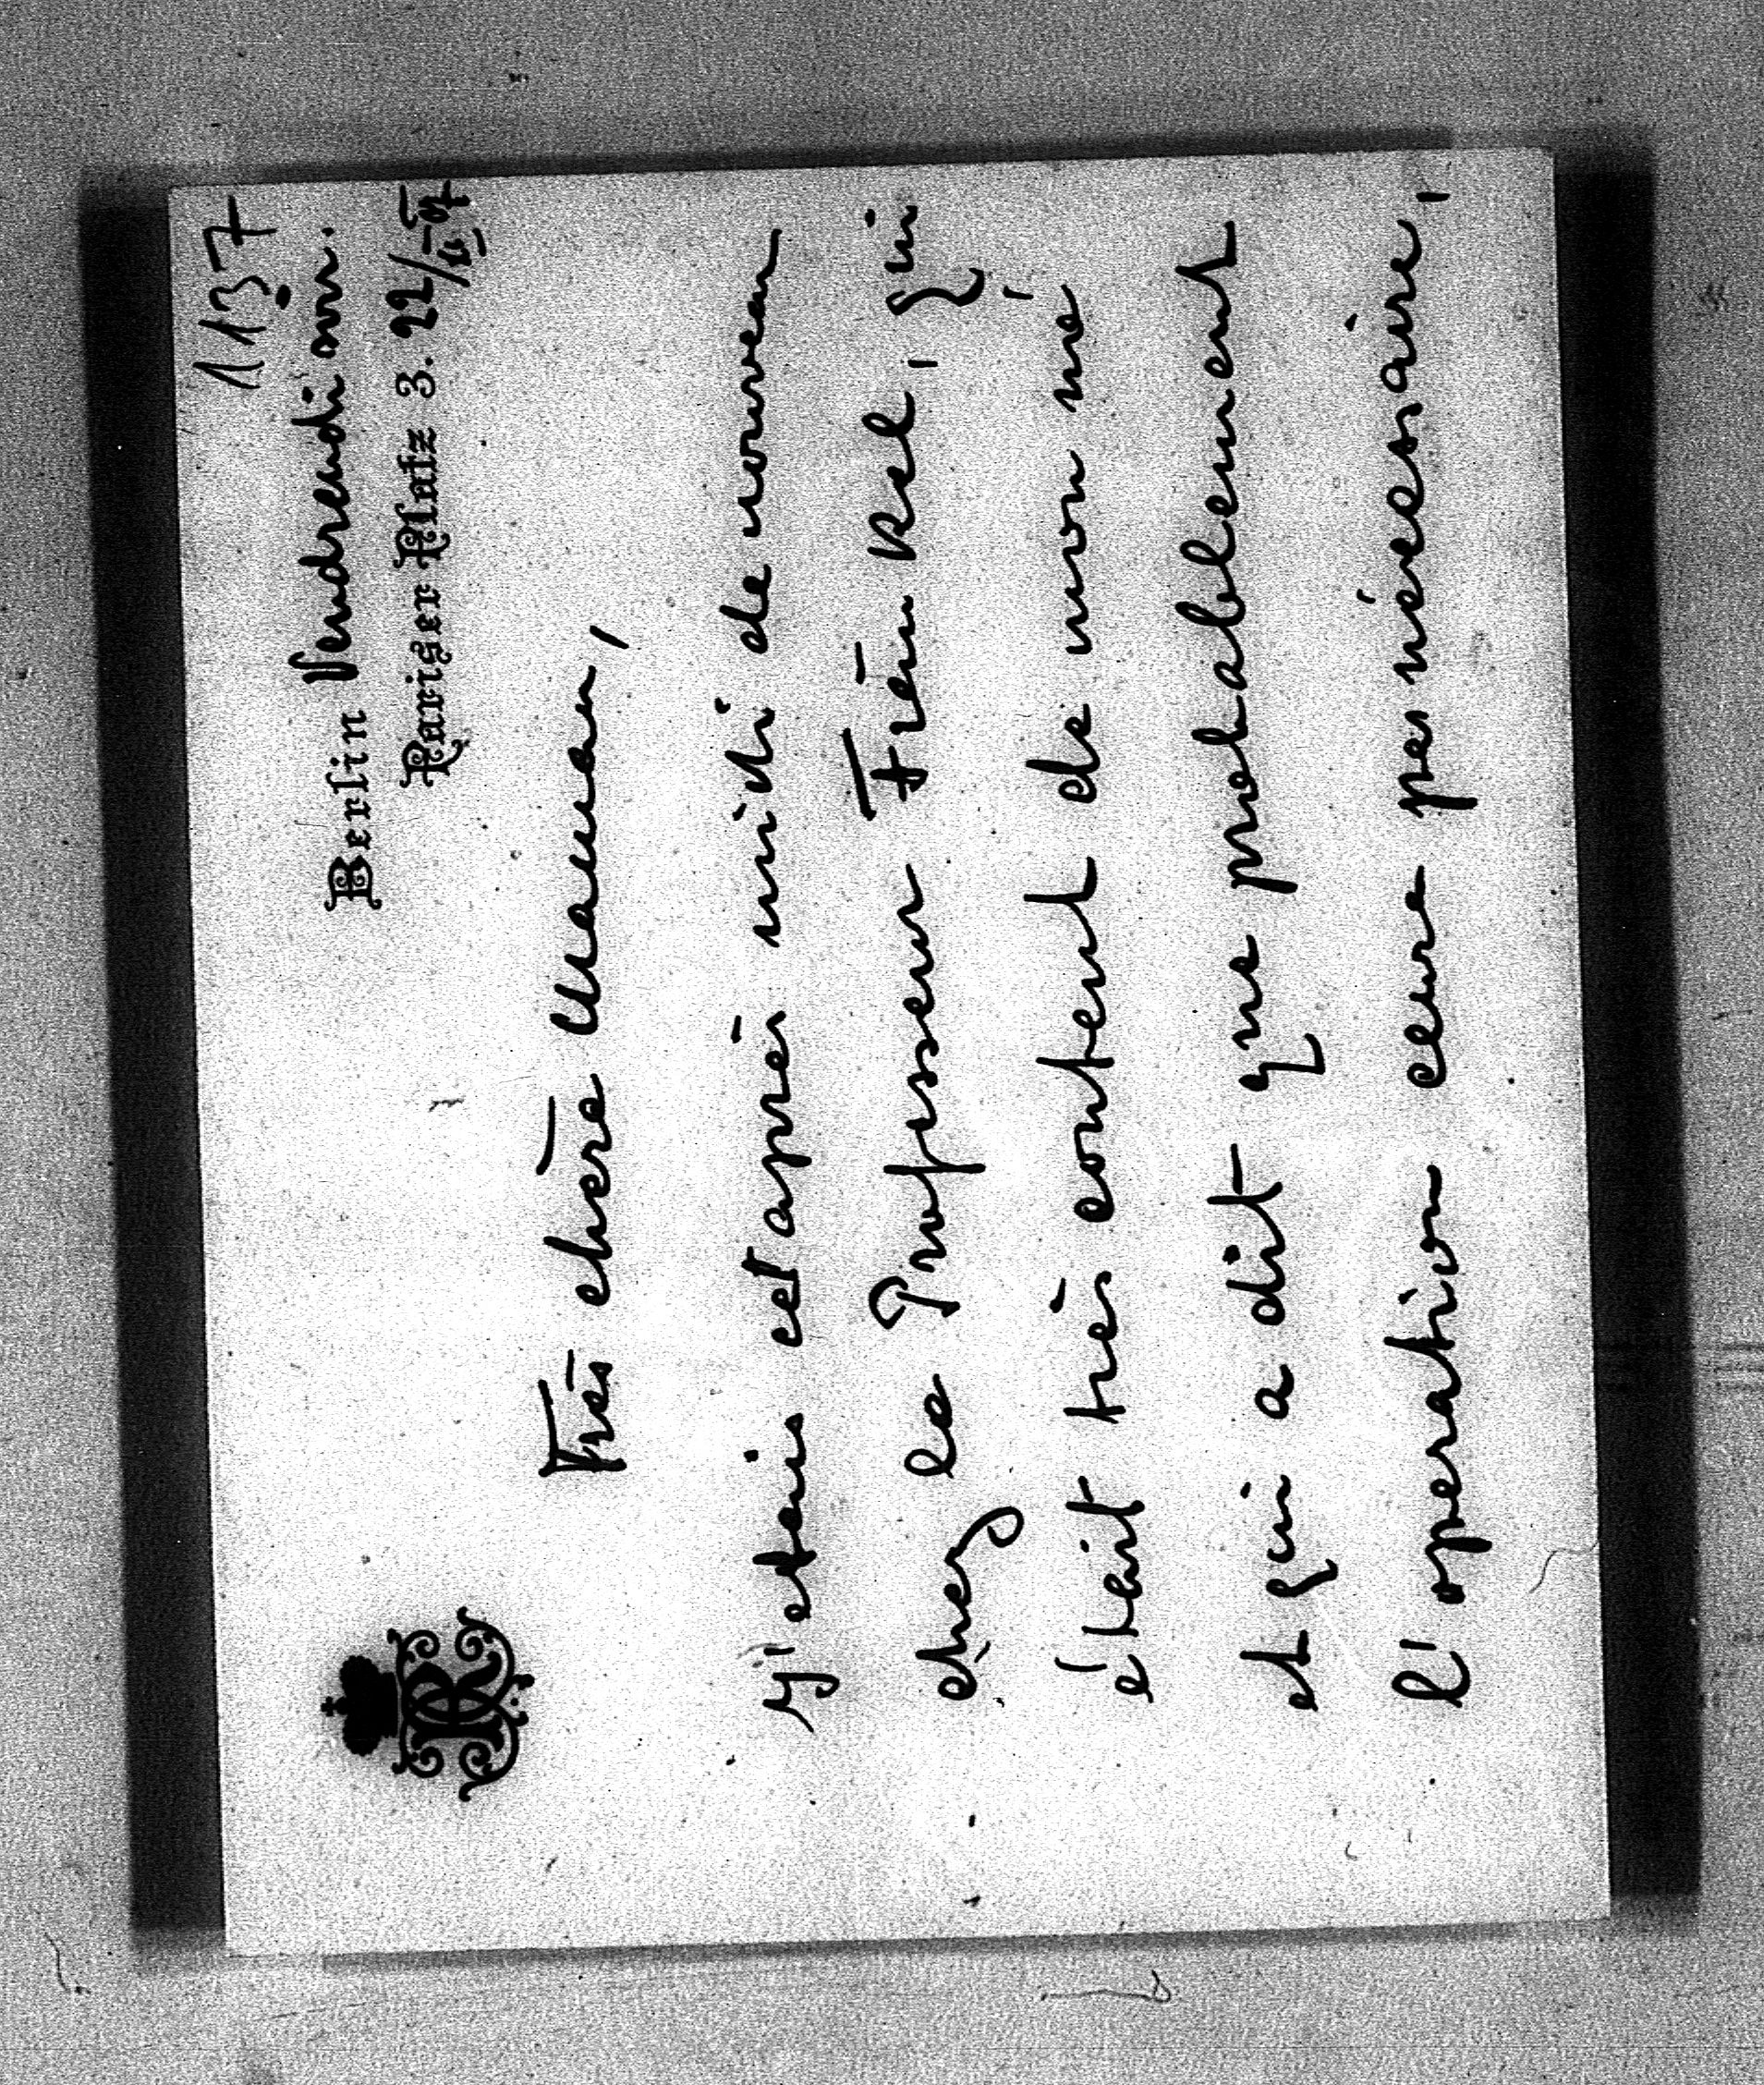 1137
Berlin Vendredi soir.
Pariser Platz 3. 22/II 07
Très chère Maman,
J'etais cet après midi de nouveau
chez le Professeur Fränkel, qui
était très content de mon né
et qui a dit que probablement
l'operation sera pas nécessaire,